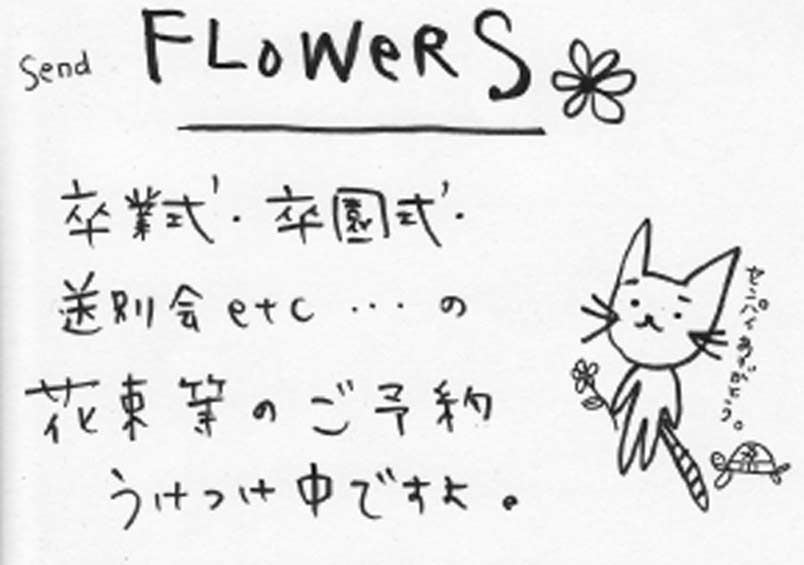 Send FLoWeRS
卒業式・卒園式・
送別会etc…の
花束等のご予約
うけつけ中ですよ。
センパイありがとう。